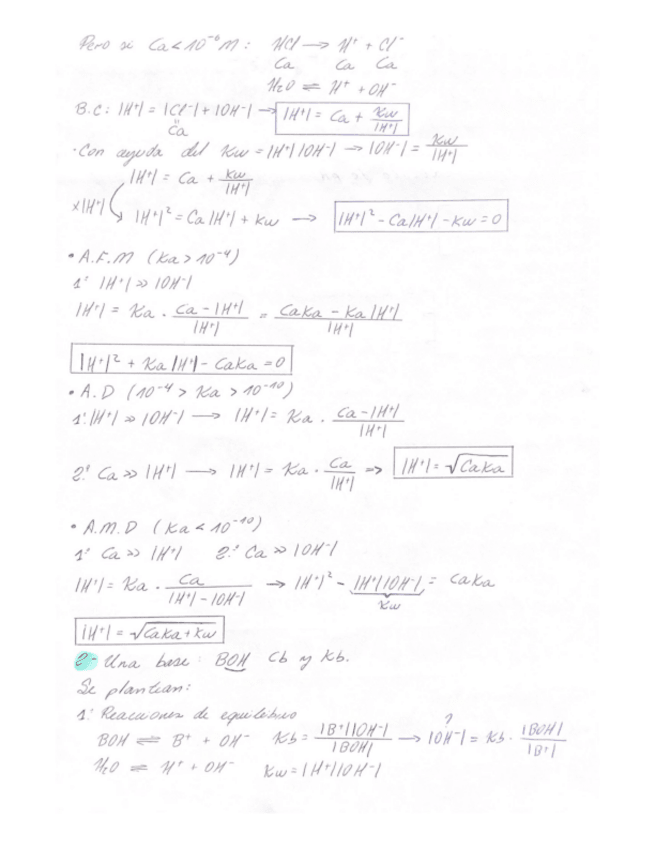 Pero si Ca < 10⁻⁶ M : HCl → H⁺ + Cl⁻
Ca Ca Ca
H₂O ⇌ H⁺ + OH⁻
B.C : |H⁺| = |Cl⁻| + |OH⁻| → |H⁺| = Ca + Kw/|H⁺|
= Ca
· Con ayuda del Kw = |H⁺||OH⁻| → |OH⁻| = Kw/|H⁺|
|H⁺| = Ca + Kw/|H⁺|
x|H⁺| |H⁺|² = Ca|H⁺| + Kw → |H⁺|² - Ca|H⁺| - Kw = 0
• A.F.M (Ka > 10⁻⁴)
1ª |H⁺| >> |OH⁻|
|H⁺| = Ka · (Ca - |H⁺|)/|H⁺| = (CaKa - Ka|H⁺|)/|H⁺|
|H⁺|² + Ka|H⁺| - CaKa = 0
• A.D (10⁻⁴ > Ka > 10⁻¹⁰)
1ª |H⁺| >> |OH⁻| → |H⁺| = Ka · (Ca - |H⁺|)/|H⁺|
2ª Ca >> |H⁺| → |H⁺| = Ka · Ca/|H⁺| => |H⁺| = √CaKa
• A.M.D (Ka < 10⁻¹⁰)
1ª Ca >> |H⁺| 2ª Ca >> |OH⁻|
|H⁺| = Ka · Ca/(|H⁺| - |OH⁻|) → |H⁺|² - |H⁺||OH⁻| = CaKa
Kw
|H⁺| = √CaKa + Kw
2- Una base : BOH Cb y Kb.
Se plantean:
1ª Reacciones de equilibrio
BOH ⇌ B⁺ + OH⁻ Kb = |B⁺||OH⁻|/|BOH| → |OH⁻| = Kb · |BOH|/|B⁺|
?
H₂O ⇌ H⁺ + OH⁻ Kw = |H⁺||OH⁻|